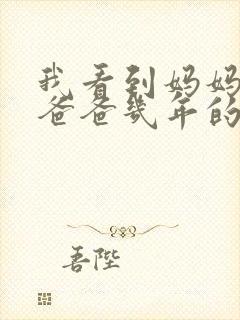 我看到妈妈
爸爸几年的
吾陛